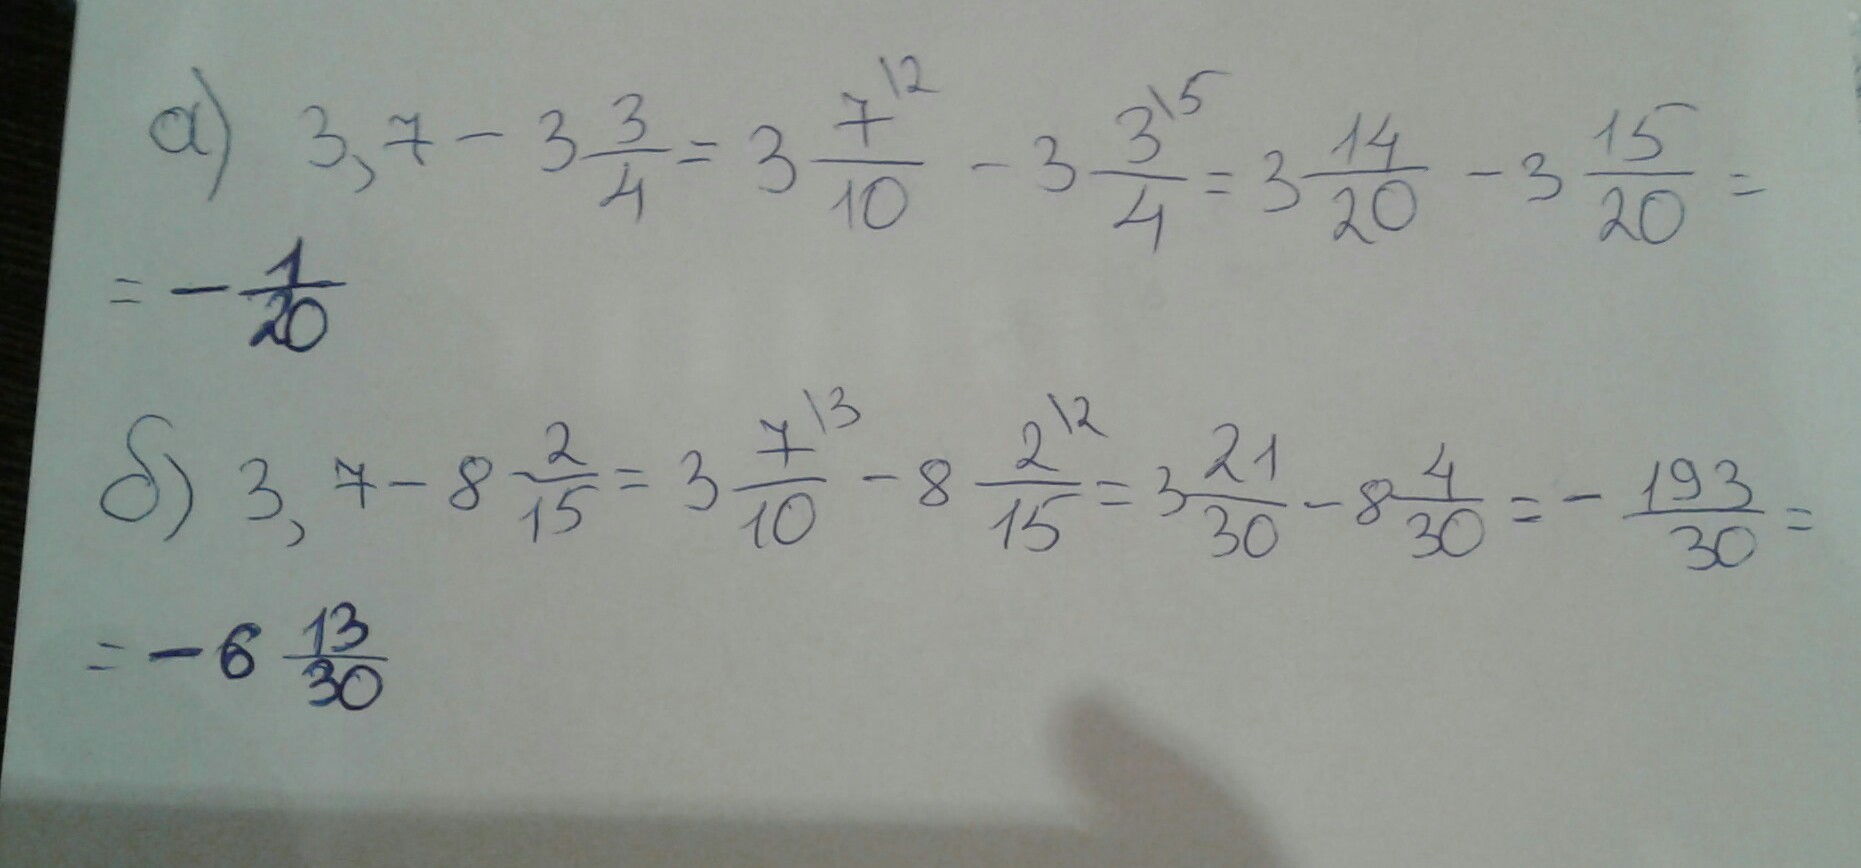 а) 3,7 - 3 3/4 = 3 7\2/10 - 3 3\5/4 = 3 14/20 - 3 15/20 =
= - 1/20
б) 3,7 - 8 2/15 = 3 7\3/10 - 8 2\2/15 = 3 21/30 - 8 4/30 = - 193/30 =
= - 6 13/30